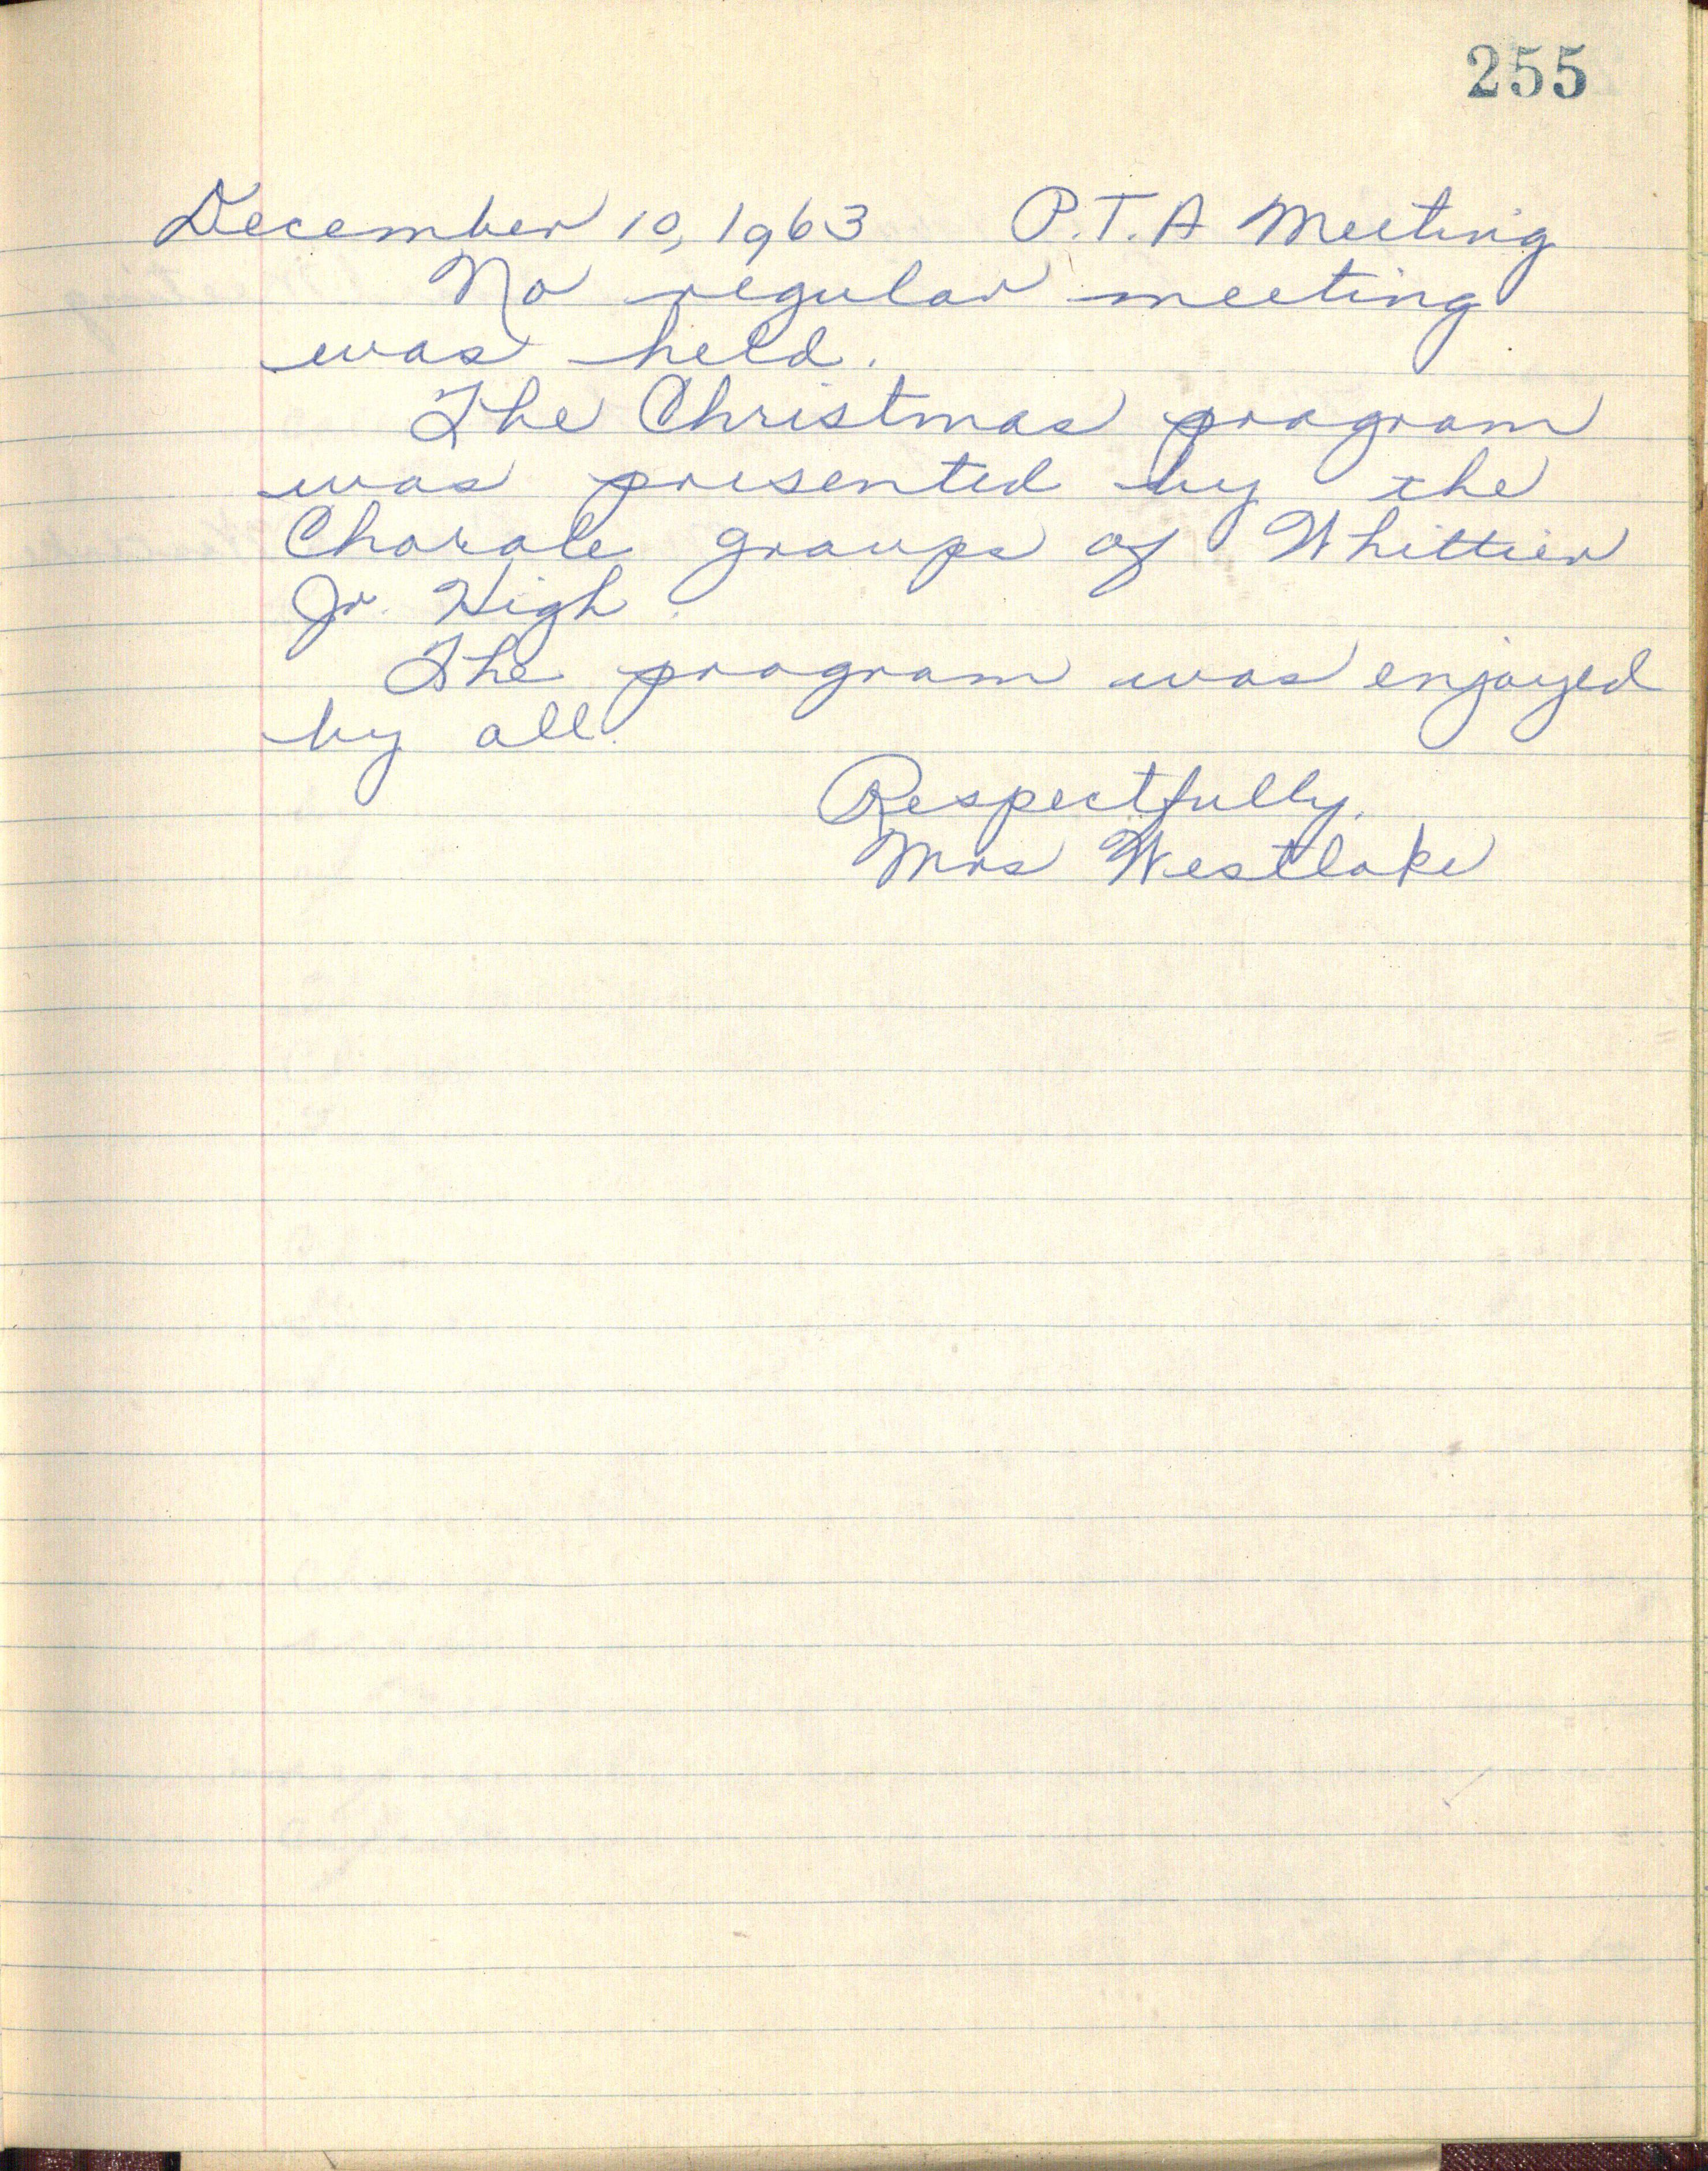 255
December 10, 1963 P.T.A Meeting
No regular meeting
was held.
The Christmas program
was presented by the
Chorale groups of Whittier
Jr. High.
The program was enjoyed
by all.
Respectfully,
Mrs Westlake